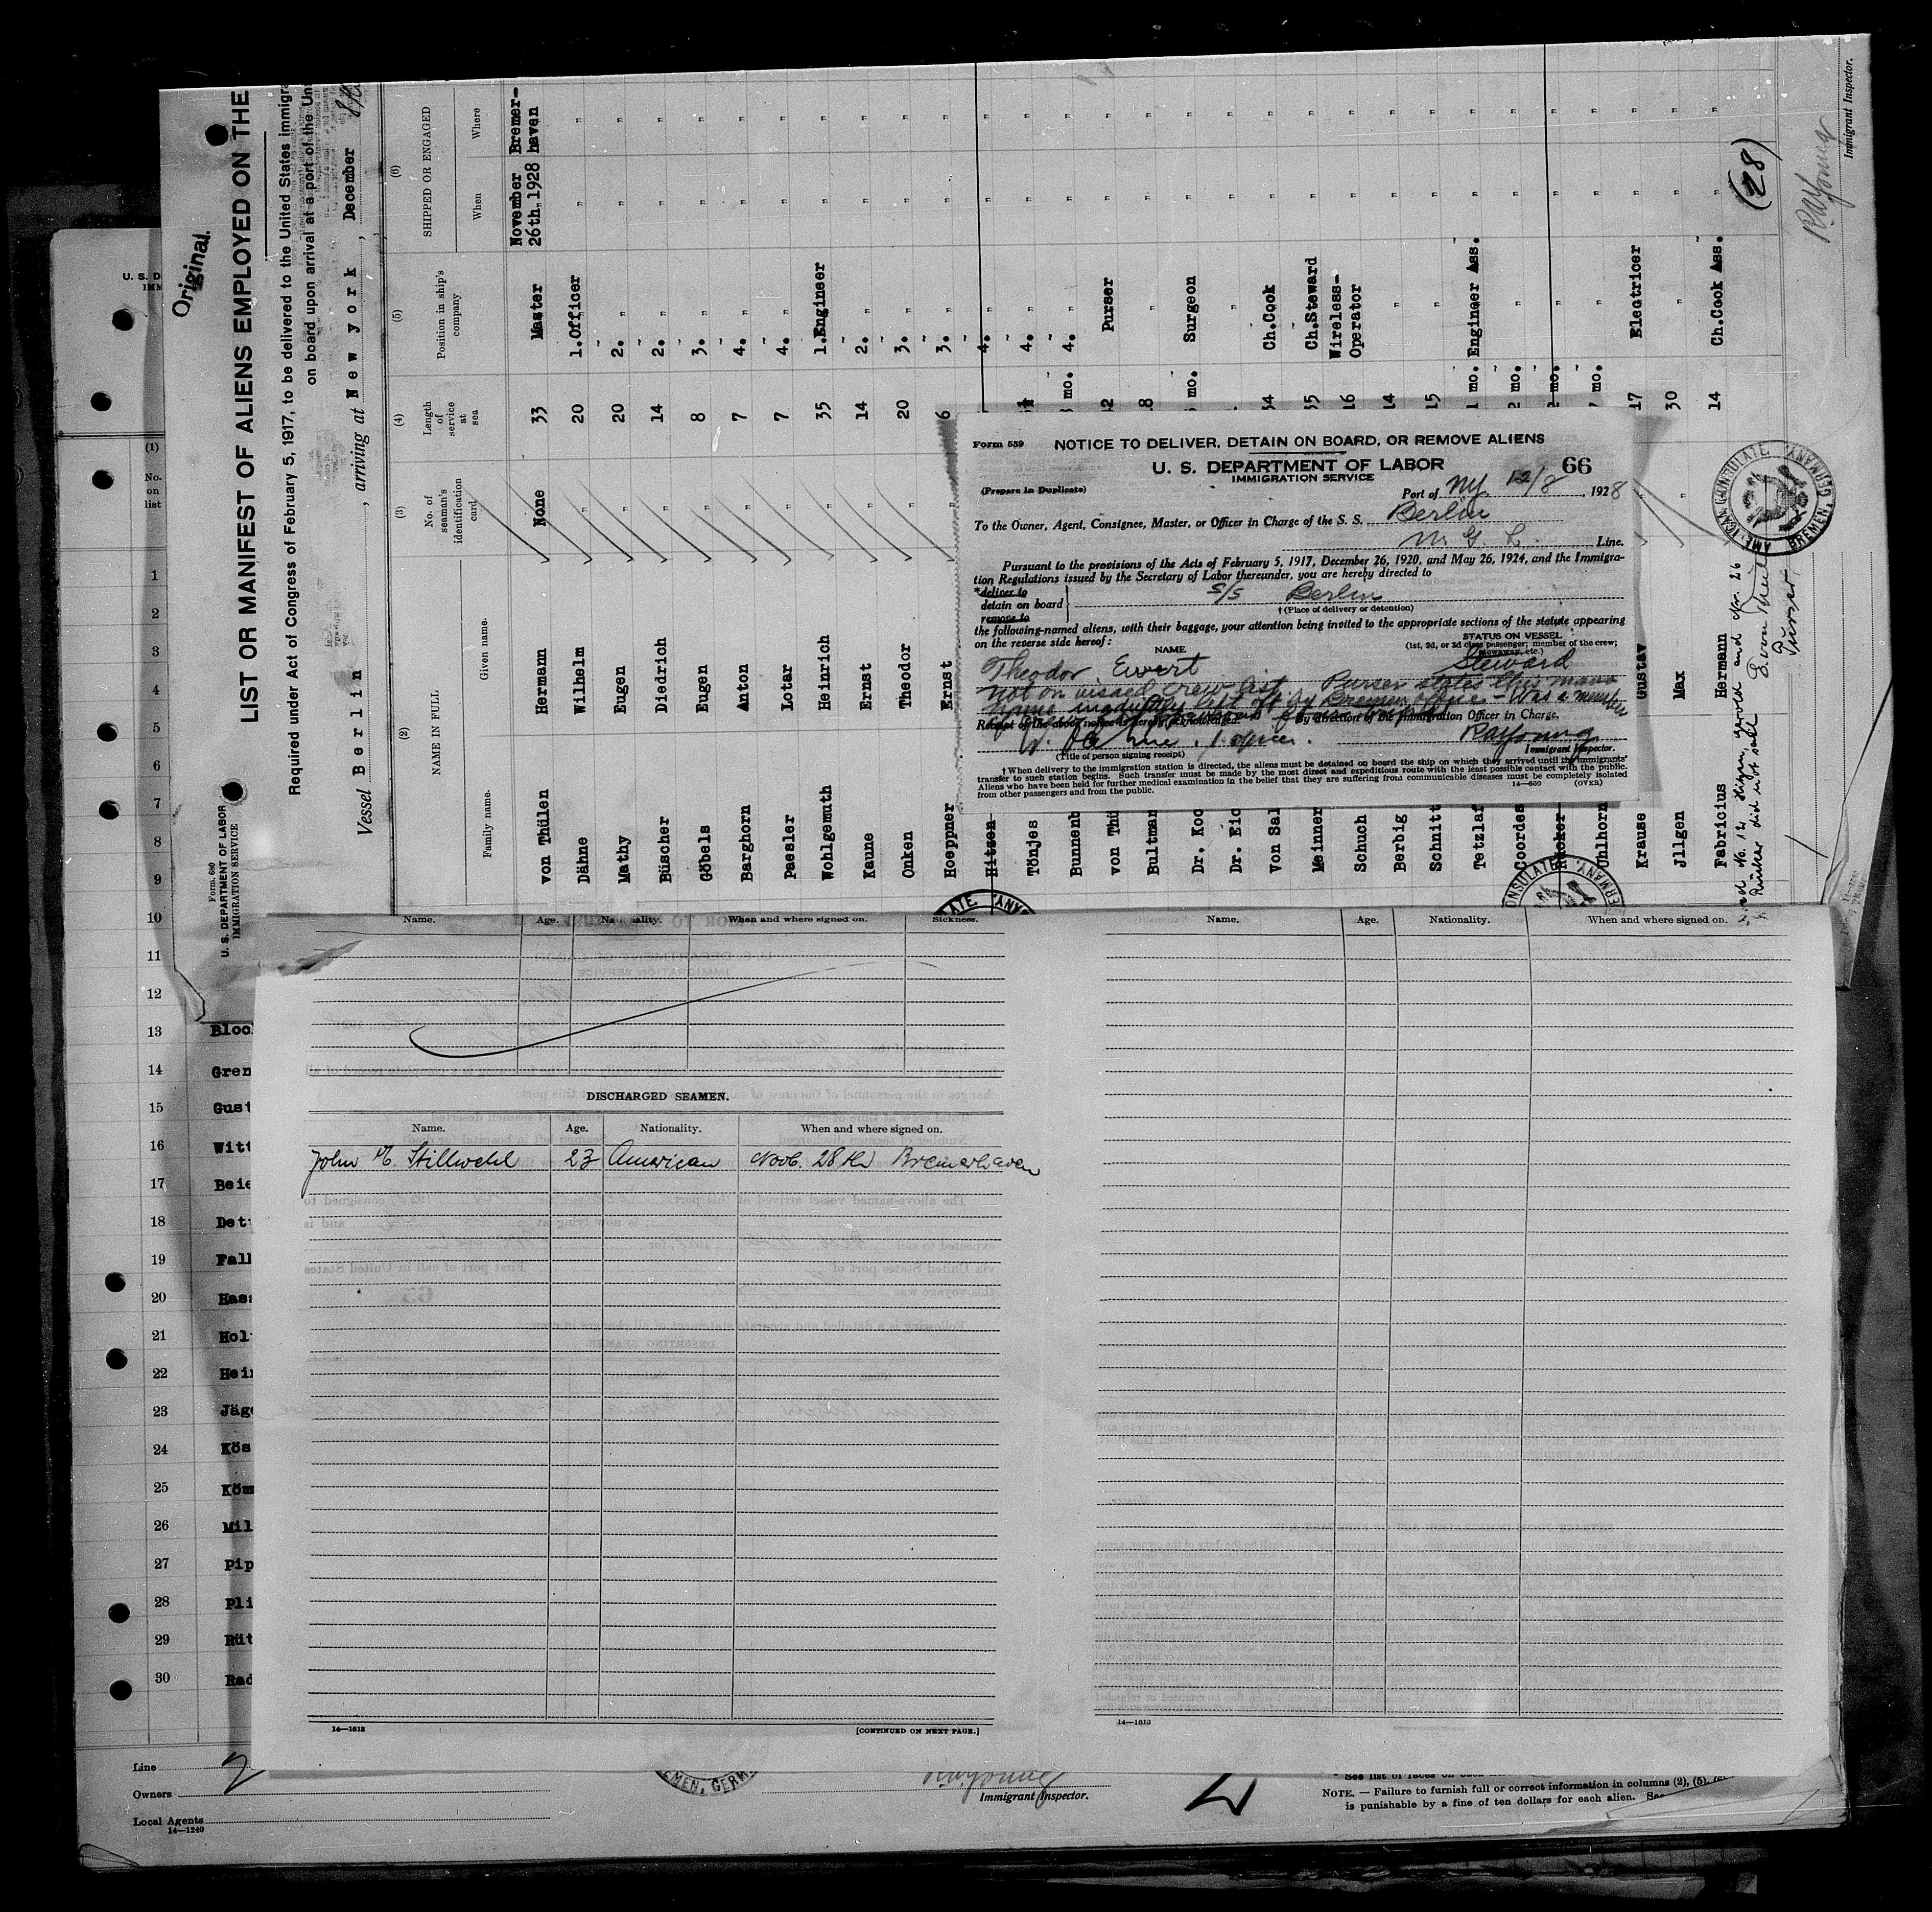 Original.
Form 680
U. S. DEPARTMENT OF LABOR
IMMIGRATION SERVICE
LIST OR MANIFEST OF ALIENS EMPLOYED ON THE
Required under Act of Congress of February 5, 1917, to be delivered to the United States immigra
on board upon arrival at a port of the Un
Vessel Berlin, arriving at New york, December
(2) (3) (4) (5) (6)
NAME IN FULL
Family name. Given name.
No. of seaman's identification card
Length of service at sea
Position in ship's company
SHIPPED OR ENGAGED
When Where
von Thülen Hermann None 33 Master November 26th, 1928 Bremer-haven
Dähne Wilhelm " 20 1.Officer " "
Mathy Eugen " 20 2. " " "
Büscher Diedrich " 14 2. " " "
Göbels Eugen " 8 3. " " "
Barghorn Anton " 7 4. " " "
Paesler Lotar " 7 4. " " "
Wohlgemuth Heinrich " 35 1.Engineer " "
Kaune Ernst " 14 2. " " "
Onken Theodor " 20 3. " " "
Hoeppner Ernst " 6 3. " " "
Hitzen 4. " " "
Tönjes 4. " " "
Bunnenb mo. 4. " " "
von Thü Purser " "
Bultman " " "
Dr. Koo mo. Surgeon " "
Dr. Eic " " "
Von Sal Ch.Cook " "
Meinner Ch.Steward " "
Schuch 16 Wireless-Operator " "
Berbig 14 " " "
Schnitt 15 " " "
Tetzlaf mo. Engineer Ass. " "
Coordes mo. " " "
Rücker mo. " " "
Uhlhorn mo. " " "
Krause Gustav 17 Electricer " "
Jllgen Max 30 " " "
Fabricius Hermann 14 Ch.Cook Ass. " "
(28)
RAYoung
Immigrant Inspector.
AMERICAN CONSULATE.
BREMEN, GERMANY
did not sail
Purser
Form 559
NOTICE TO DELIVER, DETAIN ON BOARD, OR REMOVE ALIENS
U. S. DEPARTMENT OF LABOR 66
IMMIGRATION SERVICE
(Prepare in Duplicate)
Port of NY 12/8, 1928
To the Owner, Agent, Consignee, Master, or Officer in Charge of the S. S. Berlin
N. G. L. Line.
Pursuant to the provisions of the Acts of February 5, 1917, December 26, 1920, and May 26, 1924, and the Immigra-
tion Regulations issued by the Secretary of Labor thereunder, you are hereby directed to
*deliver to
detain on board S/S Berlin
remove to
†(Place of delivery or detention)
the following-named aliens, with their baggage, your attention being invited to the appropriate sections of the statute appearing
on the reverse side hereof:
NAME
STATUS ON VESSEL
(1st, 2d, or 3d class passenger; member of the crew;
stowaway, etc.)
Theodor Ewert Steward
Not on visaed crew list Purser states this mans
name left off by Bremen office - Was a member
Receipt of the above notice is hereby acknowledged. By direction of the Immigration Officer in Charge.
RAYoung
(Title of person signing receipt) Immigrant Inspector.
†When delivery to the immigration station is directed, the aliens must be detained on board the ship on which they arrived until the immigrants'
transfer to such station begins. Such transfer must be made by the most direct and expeditious route with the least possible contact with the public.
Aliens who have been held for further medical examination in the belief that they are suffering from communicable diseases must be completely isolated
from other passengers and from the public.
14—650 (OVER)
U. S. D
IMM
(1)
No. on list
1
2
3
4
5
6
7
8
9
10
11
12
13 Bloc
14 Gren
15 Gust
16 Witt
17 Beie
18 Det
19 Fall
20 Hass
21 Hol
22 Hei
23 Jäg
24 Kös
25 Köm
26 Mil
27 Pip
28 Pli
29 Rüt
30 Rad
Name. Age. Nationality. When and where signed on. Sickness.
DISCHARGED SEAMEN.
Name. Age. Nationality. When and where signed on.
John H. Stillwehl 23 American Novb. 28th Bremerhaven
14—1613 [CONTINUED ON NEXT PAGE.]
Name. Age. Nationality. When and where signed on.
14—1613
Line
Owners
Local Agents
14—1240
EMEN, GERM
RAYoung
Immigrant Inspector.
NOTE. — Failure to furnish full or correct information in columns (2), (5), (6)
is punishable by a fine of ten dollars for each alien. See